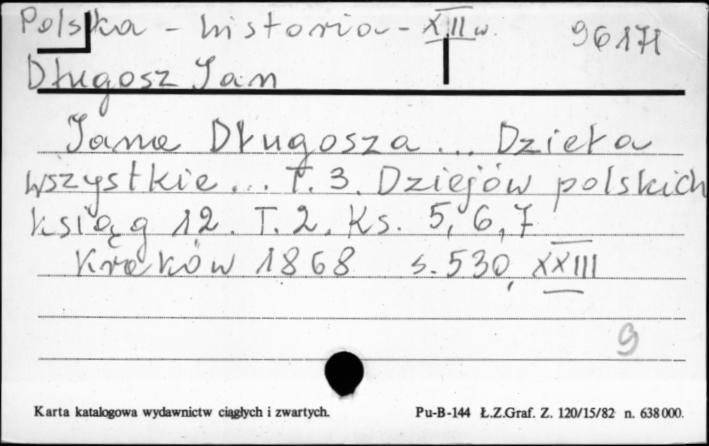 Polska - historia - XIII w. 96171
Długosz Jan
Jana Długosza ... Dzieła
wszystkie ... T. 3. Dziejów polskich
ksiąg 12. T. 2. Ks. 5, 6, 7
Kraków 1868 s. 530, XXIII
9
Karta katalogowa wydawnictw ciągłych i zwartych. Pu-B-144 Ł.Z.Graf. Z. 120/15/82 n. 638 000.